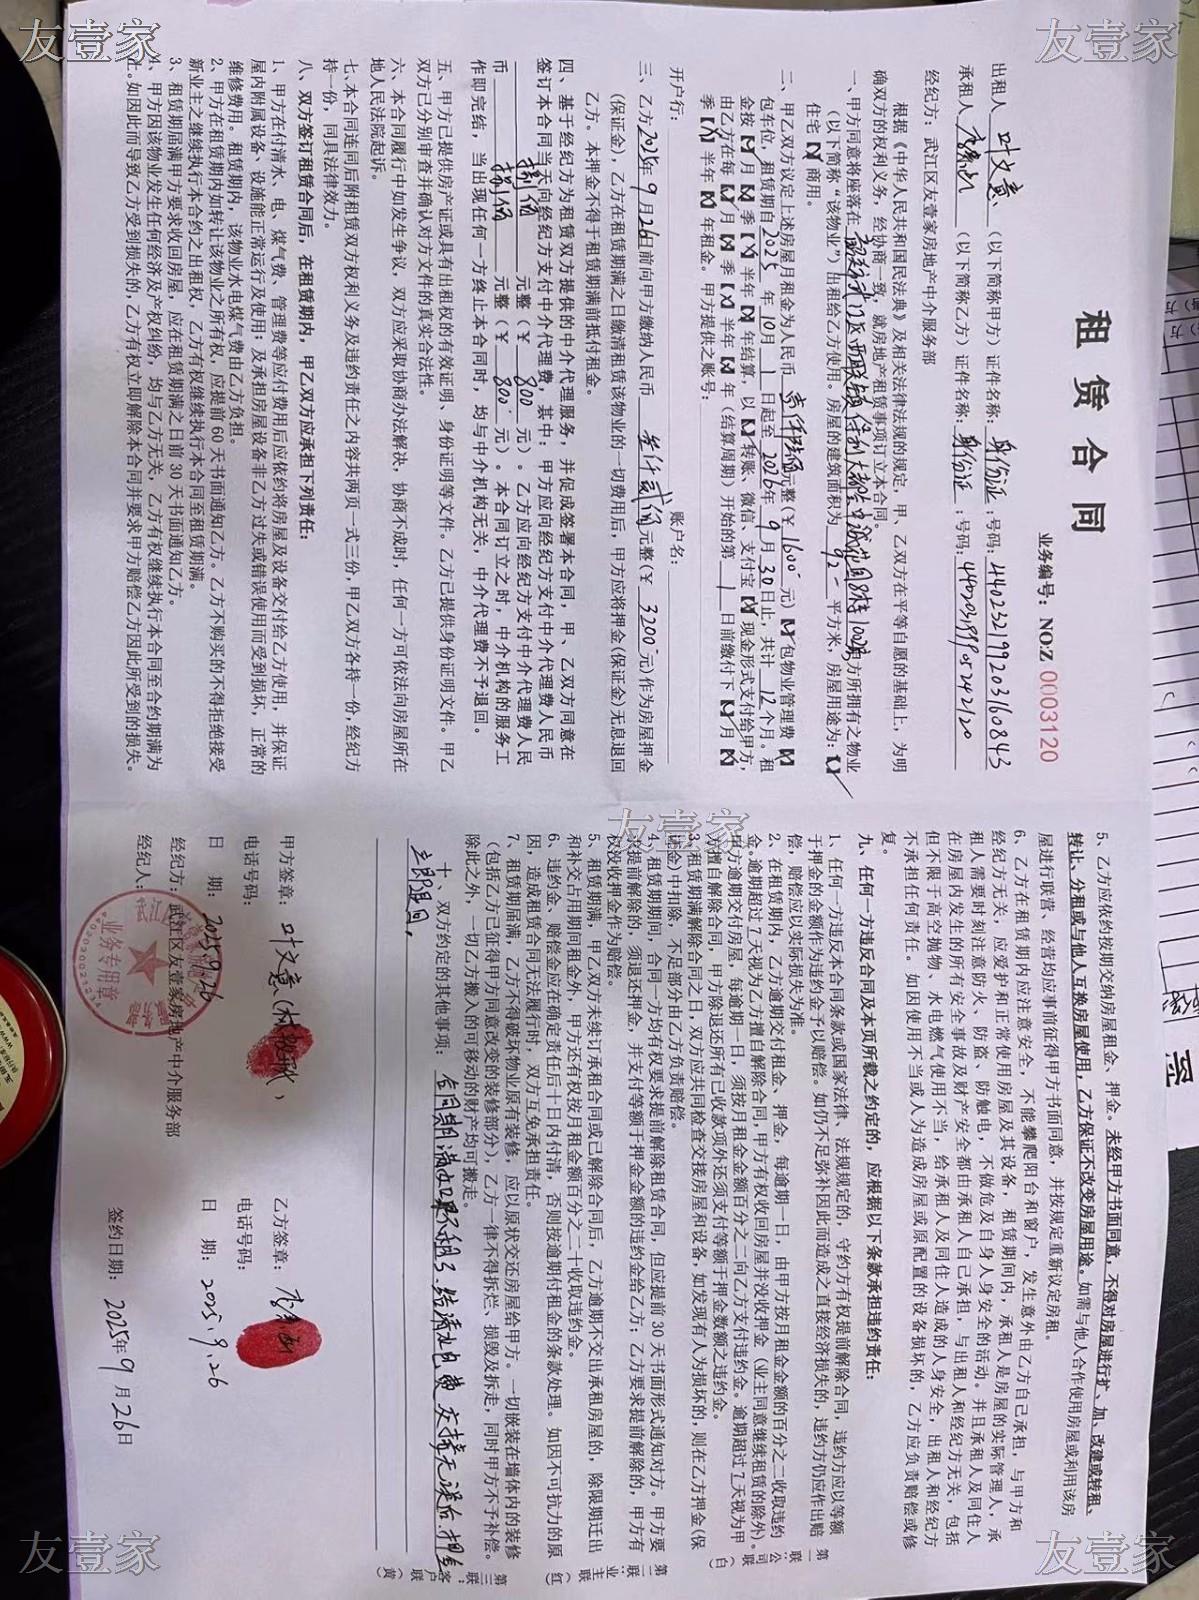 友壹家
友壹家
租赁合同
业务编号：NO:Z 0003120
出租人 叶文意 （以下简称甲方）证件名称：身份证 ；号码：440232199203160843
承租人 （以下简称乙方）证件名称：身份证 ；号码：
经纪方：武江区友壹家房地产中介服务部
根据《中华人民共和国民法典》及相关法律法规的规定，甲、乙双方在平等自愿的基础上，为明
确双方的权利义务，经协商一致，就房地产租赁事项订立本合同。
一、甲方同意将座落在 甲方所拥有之物业
（以下简称“该物业”）出租给乙方使用。房屋的建筑面积为 92 平方米，房屋用途为：【√】
住宅【×】商用。
二、甲乙双方议定上述房屋月租金为人民币 壹仟陆佰 元整（￥ 1600 元）【×】包物业管理费【×】
包车位，租赁期自2025 年 10月 1 日起至 2026年 9 月 30日止，共计 12 个月。租
金按【×】月【×】季【×】半年【×】年结算，以【×】转账、微信、支付宝【×】现金形式支付给甲方，
由乙方在每【√】月【×】季【×】半年【×】年（结算周期）开始的第 1 日前缴付下【√】月【×】
季【×】半年【×】年租金。甲方提供之账号：
开户行： 账户名：
三、乙方2025年 9月26日前向甲方缴纳人民币 叁仟贰佰 元整（￥ 3200 元）作为房屋押金
（保证金），乙方在租赁期满之日缴清租赁该物业的一切费用后，甲方应将押金（保证金）无息退回
乙方。本押金不得于租赁期满前抵付租金。
四、基于经纪方为租赁双方提供的中介代理服务，并促成签署本合同，甲、乙双方同意在
签订本合同当天向经纪方支付中介代理费，其中：甲方应向经纪方支付中介代理费人民币
捌佰 元整（￥ 800 元）。乙方应向经纪方支付中介代理费人民
币 捌佰 元整（￥ 800 元）。本合同订立之时，中介机构的服务工
作即完结，当出现任何一方终止本合同时，均与中介机构无关，中介代理费不予退回。
五、甲方已提供房产证或具有出租权的有效证明、身份证明等文件。乙方已提供身份证明文件。甲乙
双方已分别审查并确认对方文件的真实合法性。
六、本合同履行中如发生争议，双方应采取协商办法解决，协商不成时，任何一方可依法向房屋所在
地人民法院起诉。
七、本合同连同后附租赁双方权利义务及违约责任之内容共两页一式三份，甲乙双方各持一份，经纪方
持一份，同具法律效力。
八、双方签订租赁合同后，在租赁期内，甲乙双方应承担下列责任：
1、甲方在付清水、电、煤气费、管理费等应付费用后应依约将房屋及设备交付给乙方使用，并保证
屋内附属设备、设施能正常运行及使用；及承担房屋设备非乙方过失或错误使用而受到损坏，正常的
维修费用。租赁期内，该物业水电煤气费由乙方负担。
2、甲方在租赁期内如转让该物业之所有权，应提前 60 天书面通知乙方。乙方不购买的不得拒绝接受
新业主之继续执行本合约之出租权，乙方有权继续执行本合同至租赁期满。
3、租赁期届满甲方要求收回房屋，应在租赁期满之日前 30 天书面通知乙方。
4、甲方因该物业发生任何经济及产权纠纷，均与乙方无关，乙方有权继续执行本合同至合约期满为
止。如因此而导致乙方受到损失的，乙方有权立即解除本合同并要求甲方赔偿乙方因此所受到的损失。
友壹家
5、乙方应依约按期交纳房屋租金、押金。未经甲方书面同意，不得对房屋进行扩、加、改建或转租、
转让、分租或与他人互换房屋使用，乙方保证不改变房屋用途。如需与他人合作使用房屋或利用该房
屋进行联营、经营均应事前征得甲方书面同意，并按规定重新议定房租。
6、乙方在租赁期内应注意安全，不能攀爬阳台和窗户，发生意外由乙方自己承担，与甲方和
经纪方无关，应爱护和正常使用房屋及其设备，租赁期间内，承租人是房屋的实际管理人，承
租人需要时刻注意防火、防盗、防触电，不做危及自身人身安全的活动。并且承租人及同住人
在房屋内发生的所有安全事故及财产安全都由承租人自己承担，与出租人和经纪方无关，包括
但不限于高空抛物、水电燃气使用不当，给承租人及同住人造成的人身安全，出租人和经纪方
不承担任何责任。如因使用不当或人为造成房屋或原配置的设备损坏的，乙方应负责赔偿或修
复。
九、任何一方违反合同及本页所载之约定的，应根据以下条款承担违约责任：
1、任何一方违反本合同条款或国家法律、法规规定的，守约方有权提前解除合同，违约方应以等额
于押金的金额作为违约金予以赔偿。如仍不足弥补因此而造成之直接经济损失的，违约方仍应作出赔
偿，赔偿应以实际损失为准。
2、在租赁期内，乙方逾期交付租金、押金，每逾期一日，由甲方按月租金金额的百分之二收取违约
金。逾期超过 7 天视为乙方擅自解除合同，甲方有权收回房屋并没收押金（业主同意继续租赁的除外）。
甲方逾期交付房屋，每逾期一日，须按月租金金额百分之二向乙方支付违约金。逾期超过 7 天视为甲
方擅自解除合同，甲方除退还所有已收款项外还须支付按等额于押金数额之违约金。
3、租赁期满解除合同之日，双方应共同检查交接房屋和设备，如发现有人为损坏的，则在乙方押金（保
证金）中扣除，不足部分由乙方负责赔偿。
4、租赁期期间，合同一方均有权要求提前解除租赁合同，但应提前 30 天书面形式通知对方。甲方要
求提前解除的，须退还押金，并支付等额于押金金额的违约金给乙方；乙方要求提前解除的，甲方有
权没收押金作为赔偿。
5、租赁期满，甲乙双方未续订承租合同或已解除合同后，乙方逾期不交出承租房屋的，除限期迁出
和补交占用期间租金外，甲方还有权按月租金额百分之二十收取违约金。
6、违约金、赔偿金应在确定责任后十日内付清，否则按逾期付租金的条款处理。如因不可抗力的原
因，造成租赁合同无法履行时，双方互免承担责任。
7、租赁期届满，乙方不得破坏物业原有装修，应以原状交还房屋给甲方。一切嵌装在墙体内的装修
（包括乙方已征得甲方同意改变的装修部分），乙方一律不得拆烂、损毁及拆走，同时甲方不予补偿。
除此之外，一切乙方搬入的可移动的财产均可搬走。
十、双方约定的其他事项： 合同期满如果不租了，结清水电费，交接无误后，押金
立即退回。
第一联：公司联（白）
第二联：业主联（红）
第三联：客户联（黄）
甲方签章：叶文意
电话号码：
日 期：2025.9.26
经纪方：武江区友壹家房地产中介服务部
经纪人：
业务专用章
乙方签章：
电话号码：
日 期：2025.9.26
签约日期： 2025年 9月 26日
友壹家
友壹家